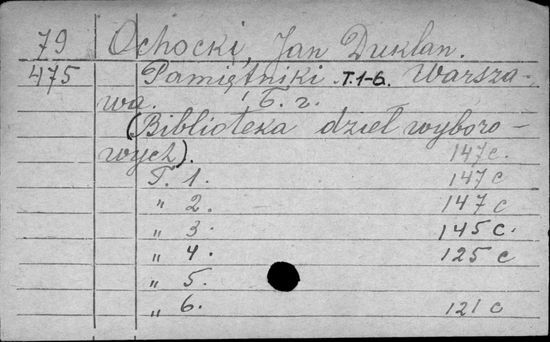 79 Ochocki, Jan Duklan.
475 Pamiętniki T.1-6. Warsza-
wa. , b. r.
(Biblioteka dzieł wyboro-
wych). 147 c.
T. 1. 147 c
" 2. 147 c
" 3. 145 c.
" 4. 125 c
" 5.
" 6. 121 c